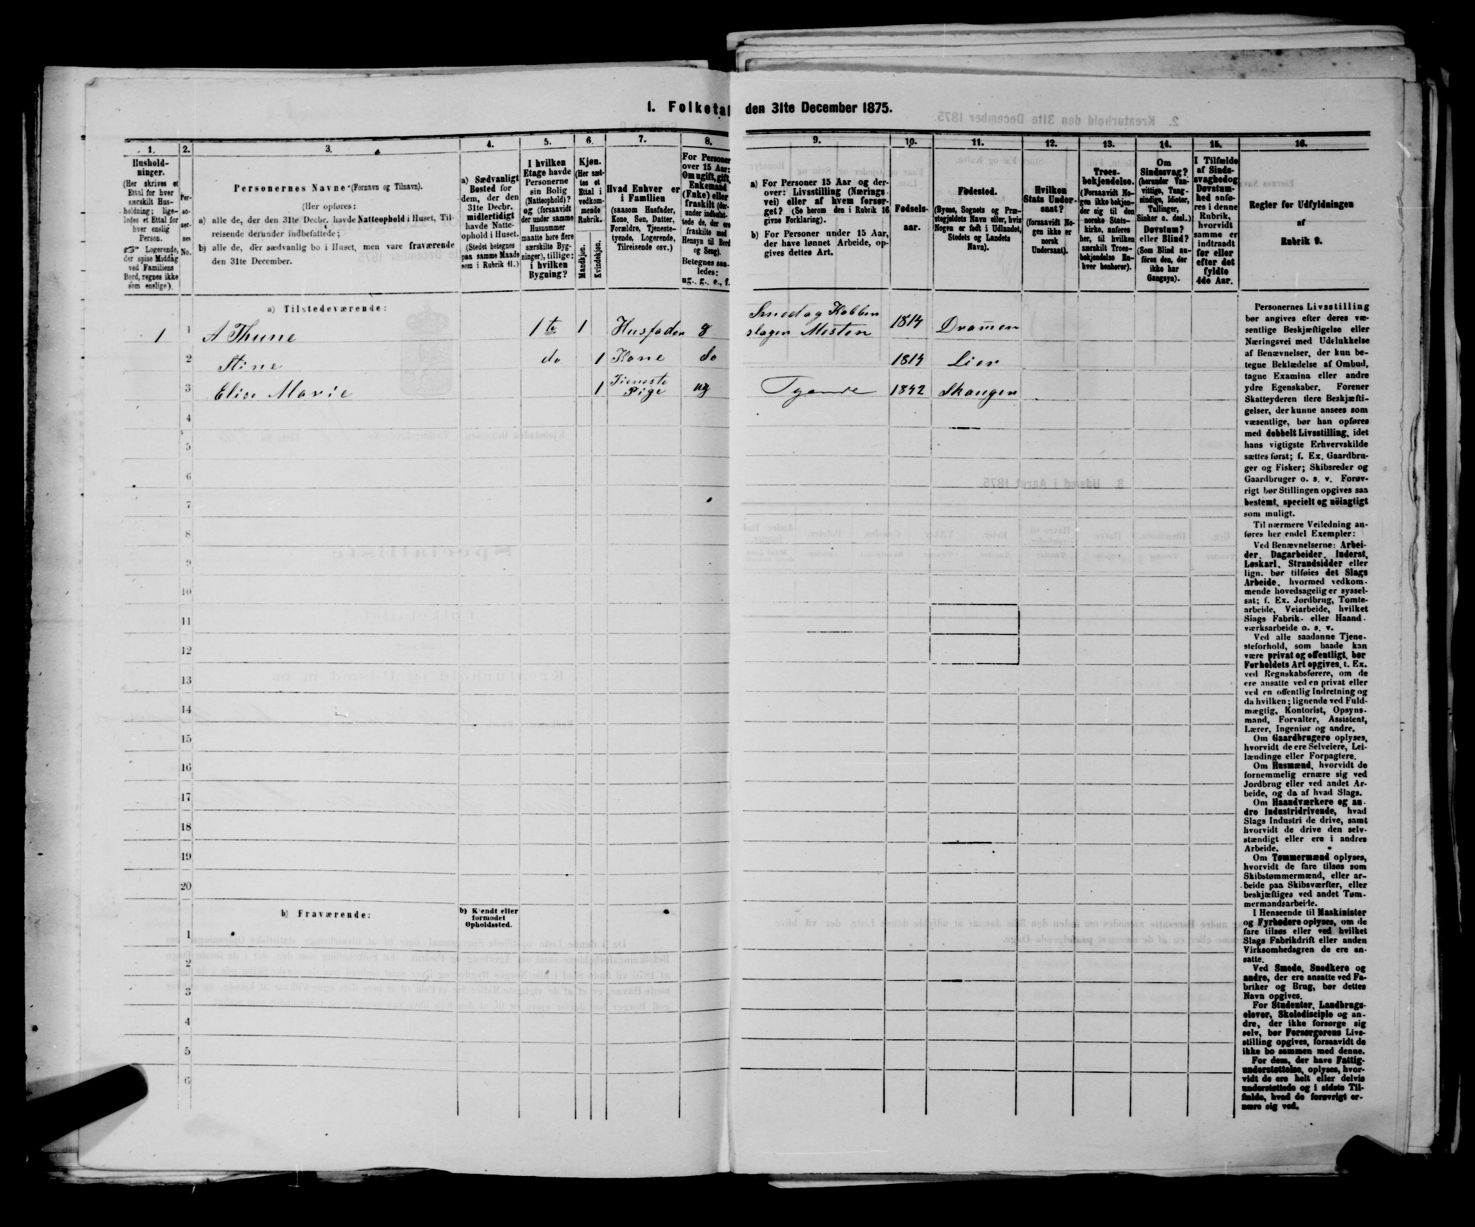 I. Folketal den 31te December 1875.
1.
Hushold-
ninger.
(Her skrives et
Ettal for hver
særskilt Hus-
holdning; lige-
ledes et Ettal for
hver enslig
Person.
☞ Logerende,
der spise Middag
ved Familiens
Bord, regnes ikke
som enslige).
2.
Per-
so-
ner-
nes
No.
3.
Personernes Navne (Fornavn og Tilnavn).
(Her opføres:
a) alle de, der den 31te Decbr. havde Natteophold i Huset, Til-
reisende derunder indbefattede;
b) alle de, der sædvanlig bo i Huset, men vare fraværende
den 31te December.
4.
a) Sædvanligt
Bosted for
dem, der den
31te Decbr.
midlertidigt
havde Natte-
ophold i Huset.
(Stedet betegnes
paa samme Maade
som i Rubrik 11.)
5.
I hvilken
Etage havde
Personerne
sin Bolig
(Natteophold)?
og (forsaavidt
der under samme
Husnummer
maatte høre flere
særskilte Byg-
ninger), tillige:
i hvilken
Bygning?
6.
Kjøn.
(Her sæt-
tes et
Ettal i
vedkom-
mende
Rubrik.
Mandkjøn.
Kvindekjøn.
7.
Hvad Enhver er
i Familien
(saasom Husfader,
Kone, Søn, Datter,
Forældre, Tjeneste-
tyende, Logerende,
Tilreisende osv.)
8.
For Personer
over 15 Aar:
Om ugift, gift,
Enkemand
(Enke) eller
fraskilt (der-
under indbefat-
tede de, der ere
fraskilte med
Hensyn til Bord
og Seng).
Betegnes saa-
ledes:
ug., g., e., f.
9.
a) For Personer 15 Aar og der-
over: Livsstilling (Nærings-
vei) eller af hvem forsør-
get? (Se herom den i Rubrik 16
givne Forklaring).
b) For Personer under 15 Aar,
der have lønnet Arbeide, op-
gives dettes Art.
10.
Fødsels-
aar.
11.
Fødested.
(Byens, Sognets og Præ-
stegjeldets Navn eller, hvis
Nogen er født i Udlandet,
Stedets og Landets
Navn).
12.
Hvilken
Stats Under-
saat?
(forsaavidt No-
gen ikke er
norsk
Undersaat).
13.
Troes-
bekjendelse.
(Forsaavidt No-
gen ikke bekjen-
der sig til den
norske Stats-
kirke, anføres
her, til hvilken
særskilt Troes-
bekjendelse En-
hver henhører).
14.
Om
Sindssvag?
(herunder Van-
vittige, Tung-
sindige, Idioter,
Tullinger,
Sinker o. desl.)
Døvstum?
eller Blind?
(Som Blind an-
føres den, der
ikke har
Gangsyn).
15.
I Tilfælde
af Sinds-
svaghed og
Døvstum-
hed anfø-
res i denne
Rubrik,
hvorvidt
samme er
indtraadt
før eller
efter det
fyldte
4de Aar.
16.
Regler for Udfyldningen
af
Rubrik 9.
a) Tilstedeværende:
1 1 A Thune 1te 1 Husfader g Smed og Kobber
slager Mester 1814 Drammen
2 Stine do 1 Kone do 1814 Lier
3 Elise Marie 1 Tjeneste
Pige ug Tyende 1842 Skauger
4
5
6
7
8
9
10
11
12
13
14
15
16
17
18
19
20
b) Fraværende:
b) Kjendt eller
formodet
Opholdssted.
1
2
3
4
5
6
Personernes Livsstilling
bør angives efter deres væ-
sentlige Beskjæftigelse eller
Næringsvei med Udelukkelse
af Benævnelser, der kun be-
tegne Beklædelse af Ombud,
tagne Examina eller andre
ydre Egenskaber. Forener
Skatteyderen flere Beskjæfti-
gelser, der kunne ansees som
væsentlige, bør han opføres
med dobbelt Livsstilling, idet
hans vigtigste Erhvervskilde
sættes først; f. Ex. Gaardbru-
ger og Fisker; Skibsreder og
Gaardbruger o. s. v. Forøv-
rigt bør Stillingen opgives saa
bestemt, specielt og nöiagtigt
som muligt.
Til nærmere Veiledning an-
føres her endel Exempler:
Ved Benævnelserne: Arbei-
der, Dagarbeider, Inderst,
Løskarl, Strandsidder eller
lign. bør tilføies det Slags
Arbeide, hvormed vedkom-
mende hovedsagelig er syssel-
sat; f. Ex. Jordbrug, Tomte-
arbeide, Veiarbeide, hvilket
Slags Fabrik- eller Haand-
værksarbeide o. s. v.
Ved alle saadanne Tjene-
steforhold, som baade kan
være privat og offentligt, bør
Forholdets Art opgives, t. Ex.
ved Regnskabsførere, om de
ere ansatte ved en privat eller
ved en offentlig Indretning og
da hvilken; lignende ved Fuld-
mægtig, Kontorist, Opsyns-
mand, Forvalter, Assistent,
Lærer, Ingeniør og andre.
Om Gaardbrugere oplyses,
hvorvidt de ere Selveiere, Lei-
lændinge eller Forpagtere.
Om Husmænd, hvorvidt de
fornemmelig ernære sig ved
Jordbrug eller ved andet Ar-
beide, og da af hvad Slags.
Om Haandværkere og an-
dre Industridrivende, hvad
Slags Industri de drive, samt
hvorvidt de drive den selv-
stændigt eller ere i andres
Arbeide.
Om Tømmermænd oplyses,
hvorvidt de fare tilsøs som
Skibstømmermænd, eller ar-
beide paa Skibsværfter, eller
beskjæftiges ved andet Tøm-
mermandsarbeide.
I Henseende til Maskinister
og Fyrbødere oplyses, om de
fare tilsøs eller ved hvilket
Slags Fabrikdrift eller anden
Virksomhedsgren de ere an-
satte.
Ved Smede, Snedkere og
andre, der ere ansatte ved Fa-
briker og Brug, bør dettes
Navn opgives.
For Studenter, Landbrugs-
elever, Skoledisciple og an-
dre, der ikke forsørge sig
selv, bør Forsørgerens Livs-
stilling opgives, forsaavidt de
ikke bo sammen med denne.
For dem, der have Fattig-
understøttelse, oplyses, hvor-
vidt de ere helt eller delvis
understøttede og i sidste Til-
fælde, hvad de forøvrigt er-
nære sig ved.